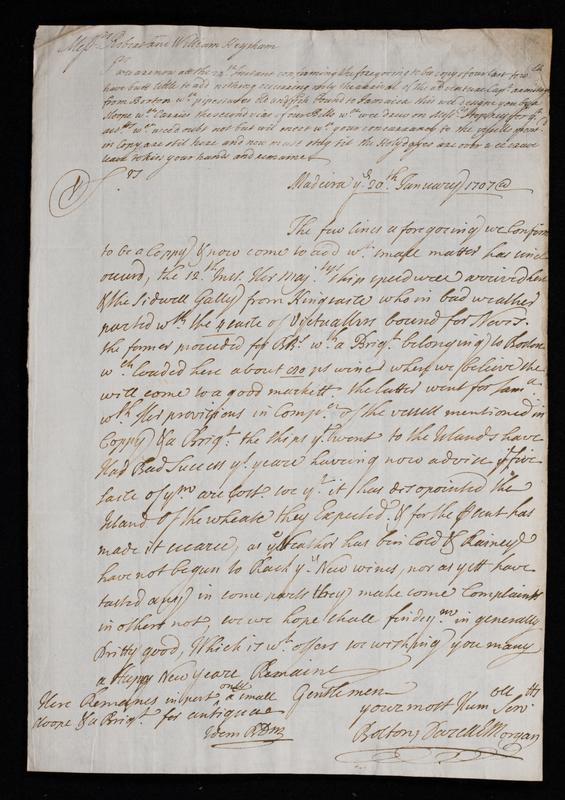 Mess.rs Robert and William Heysham
S.rs
we are now att the 24.th Instant confirming the foregoing to be copy of our last
have butt little to add nothing occurring only the arivall of the adventure Cap.t
from Boston w.th pipestaves Oil and fish bound to Jamaica this will
Sloope w.ch Carries the second vias of our Bills w.ch wee drew on Mess.rs
w.ch wee doubt not but will meet w.th your concurrance the vessells
in Copy are still here and now must only till the Holydayes are over
kiss your hands and remaine
Madeira y.e 20.th January 1707
The few lines aforegoing we Confirm
to be a Coppy & now come to add w.t small matter has since
occurd, the 12.th Inst. Her Maj.tys Ship speedwell arrived here
& the Sidwell Gally from Kingsaile who in bad weather
parted w.th the 4 saile of Victuallers bound for Nevis
the former proceeded for Bb.s w.th a Brig.t belonging to Boston
w.ch loaded here about 100 ps wines where we believe they
will come to a good markett. the latter went for Jam.a
w.th Her provisions in Comp.a of the vessell mentioned in
Coppy & a Brig.t the ships y.t went to the Islands have
Had Bad Success y.s yeare haveing now advice y.t five
saile of y.m are lost. soe y.t it has disopointed the
Island of the wheate they Expected. & for the p.sent has
made it scarce, as y.e Weather has bin Cold & Rainey
have not begun to Rack y.e New wines, nor as yett have
tasted any in some parts they make some Complaints
in others not, soe we hope shall finde y.m in generally
Pritty good, Which is w.t offers soe wishing you many
a Happy New yeare Remaine
Gentlemen
your most Hum.ble Serv.tts
Bolton, Darell & Morgan
Here Remaines in port onely a small
sloope & a Brig.t for antigua
Idem BD&M